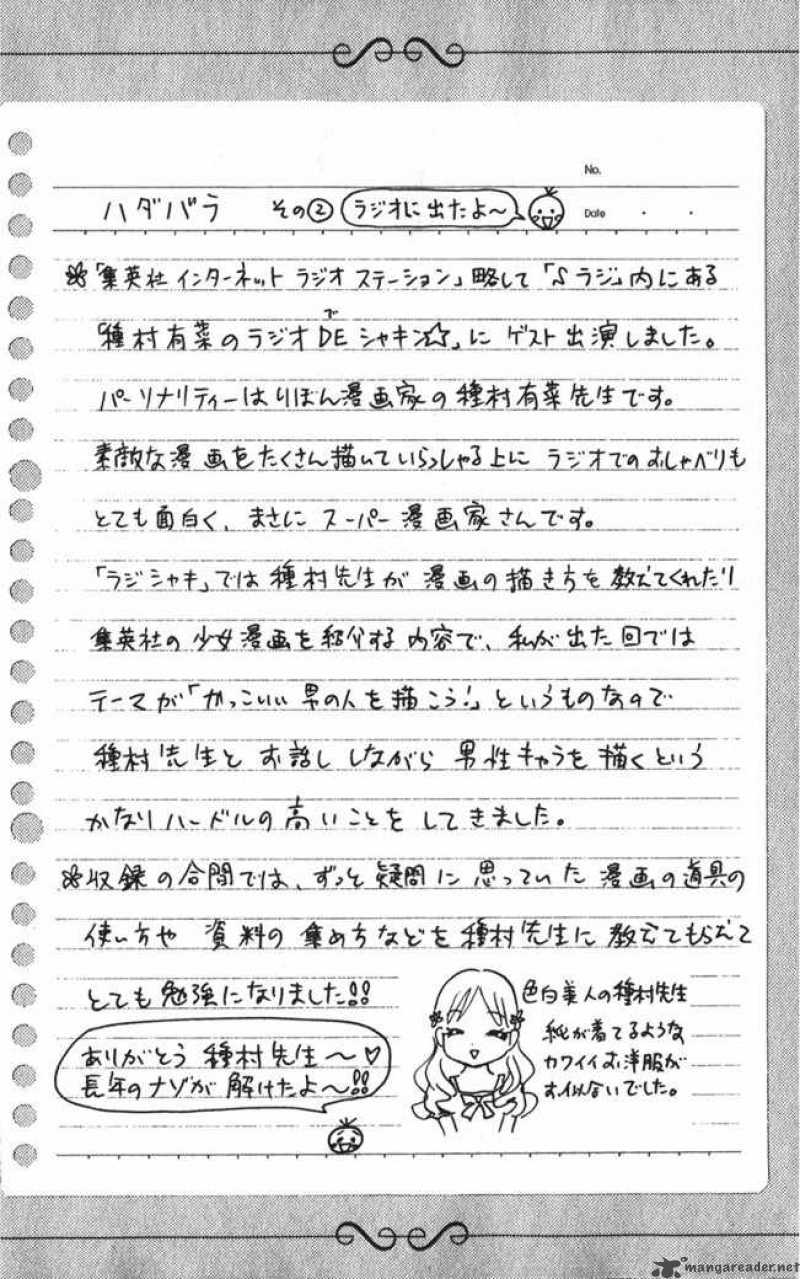 No.
ハダバラ その② ラジオに出たよ〜
Date ・ ・
「集英社インターネット ラジオ ステーション」略して「Sラジ」内にある
「種村有菜のラジオDEシャキン☆」に ゲスト出演しました。
で
パーソナリティーはりぼん漫画家の種村有菜先生です。
素敵な漫画をたくさん描いていらっしゃる上に ラジオでのおしゃべりも
とても面白く、まさに スーパー漫画家さんです。
「ラジシャキ」では種村先生が 漫画の描き方を教えてくれたり
集英社の少女漫画を紹介する内容で、私が出た回では
テーマが「かっこいい男の人を描こう!」というものなので
種村先生と お話ししながら 男性キャラを描くという
かなりハードルの高いことを してきました。
収録の合間では、ずっと疑問に思っていた漫画の道具の
使い方や 資料の集め方などを種村先生に教えてもらえて
とても勉強になりました!!
ありがとう 種村先生〜♡
長年のナゾが 解けたよ〜!!
色白美人の種村先生
私が着てるような
カワイイお洋服が
お似合いでした。
mangareader.net